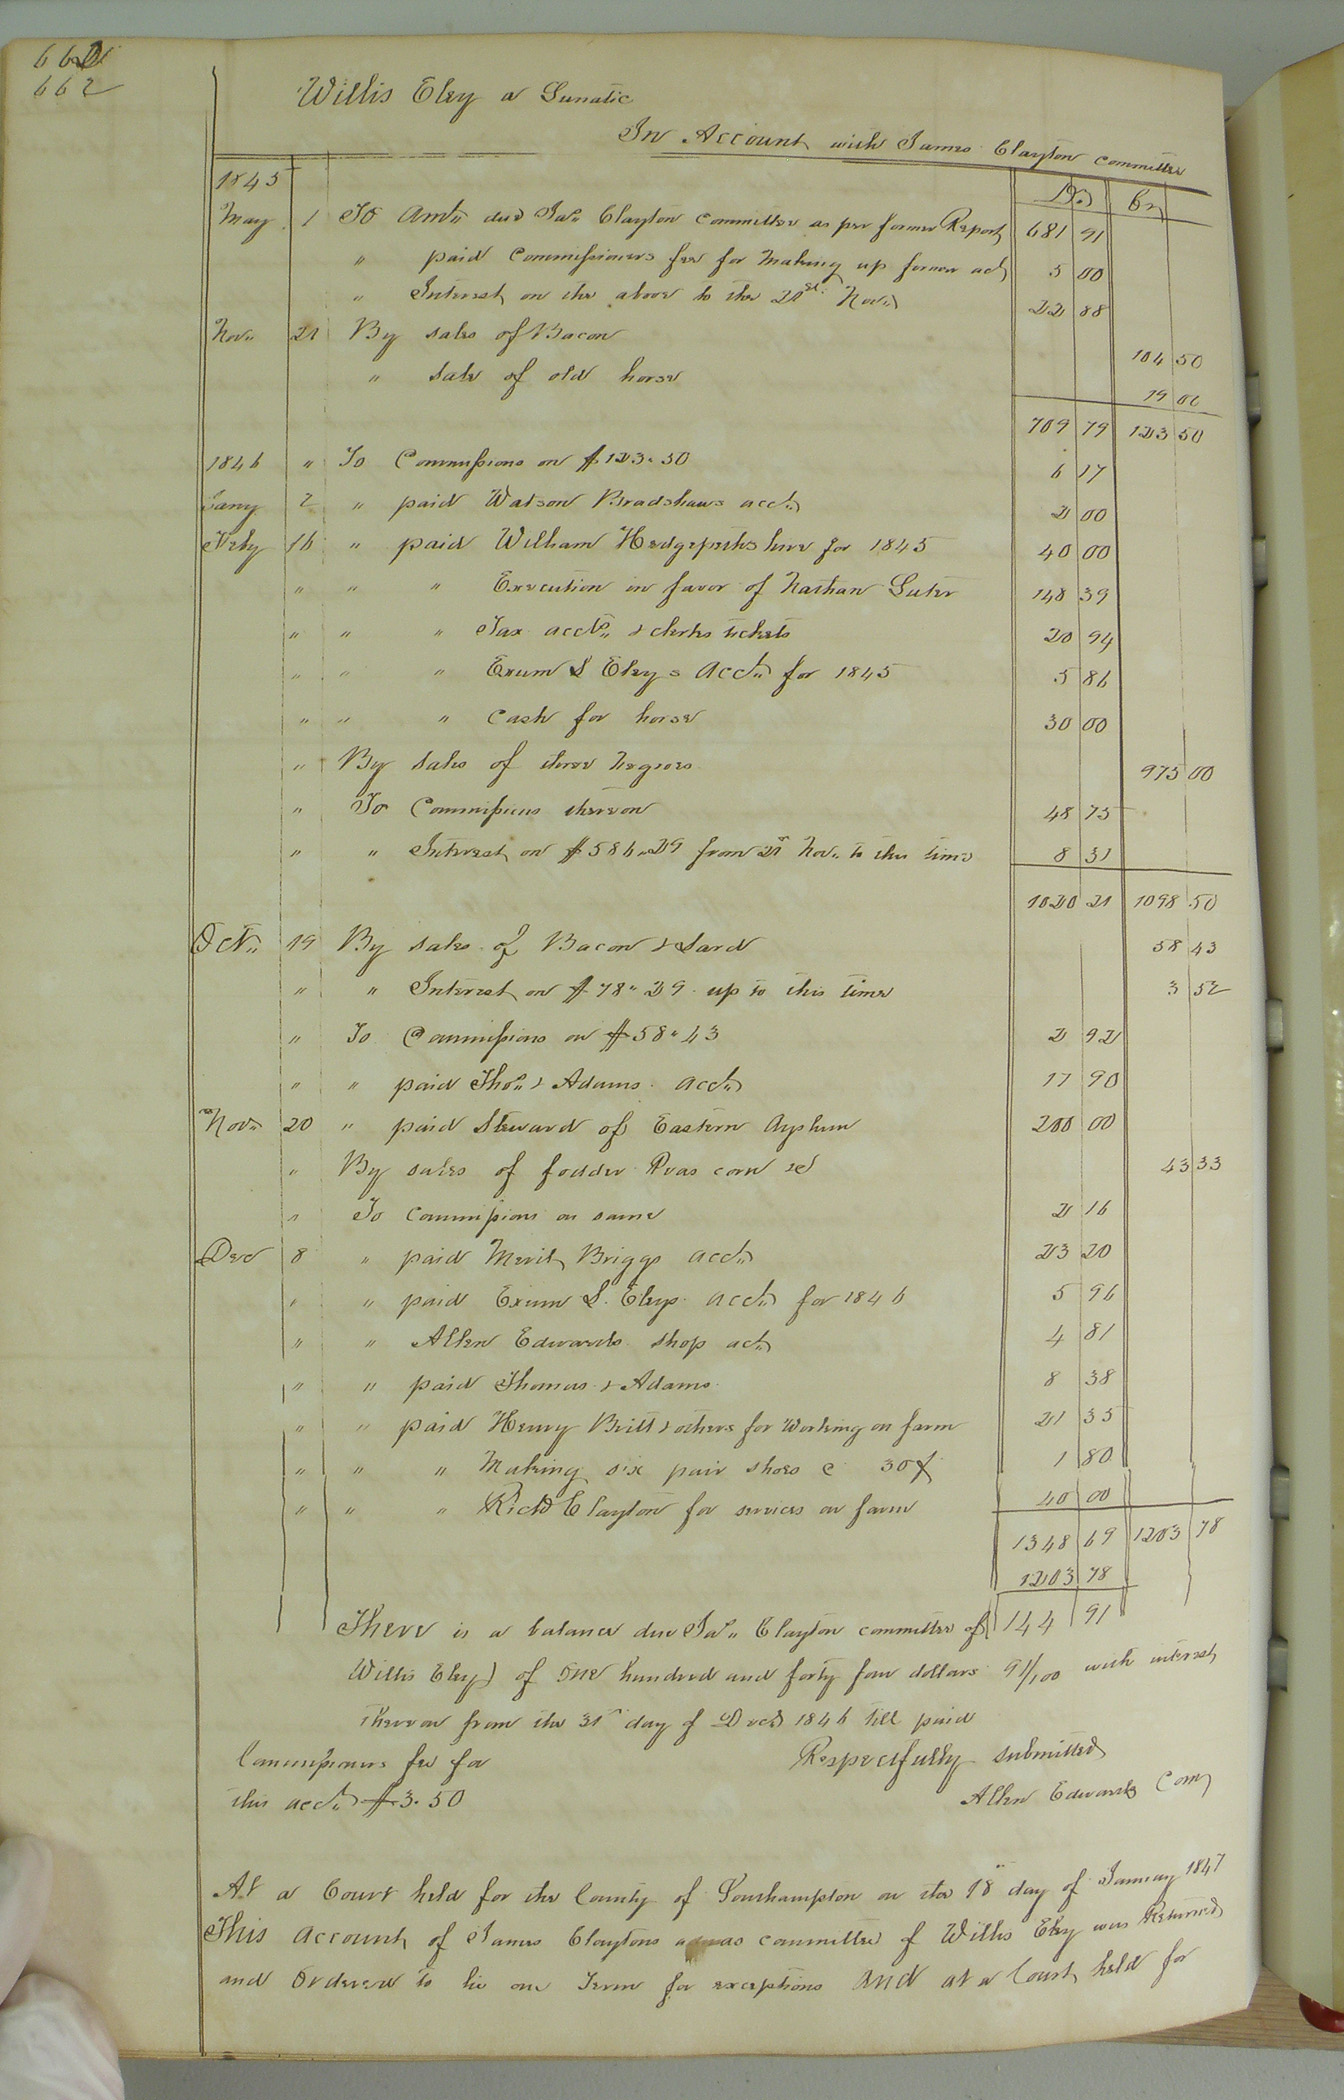 662
Willis Eley a Lunatic
In Account with James Clayton committee
1845 Dr Cr
May 1 To Amt. due Jas. Clayton committee as per former Report 681 91
" paid Commissioners fee for making up former act 5 00
" Interest on the above to the 21st Nov. 22 88
Nov. 21 By sales of Bacon 104 50
" sale of old horse 19 00
709 79 123 50
1846 " To Commissions on $123.50 6 17
Jany 2 " paid Watson Bradshaws acct. 2 00
Feby 16 " paid William Hedgepeths hire for 1845 40 00
" " " Execution in favor of Nathan Luter 148 39
" " " Tax accts. & clerks tickets 20 94
" " " Exum L Eleys acct. for 1845 5 86
" " " Cash for horse 30 00
" By sales of three negroes 975 00
" To Commissions thereon 48 75
" " Interest on $586.29 from 21st Nov. to this time 8 31
1020 21 1098 50
Oct. 19 By sales of Bacon & Lard 58 43
" " Interest on $78.29 up to this time 3 52
" To Commissions on $58.43 2 92
" " paid Thos. & Adams acct. 17 90
Nov. 20 " paid Steward of Eastern Asylum 200 00
" By sales of fodder Peas corn &c 43 33
" To commissions on same 2 16
Dec 8 " paid Merit Briggs acct. 23 20
" " paid Exum L. Eleys acct. for 1846 5 96
" " Allen Edwards shop act. 4 81
" " paid Thomas & Adams 8 38
" " paid Henry Britt & others for working on farm 21 35
" " " Making six pair shoes @ 30¢ 1 80
" " " Richd Clayton for services on farm 40 00
1348 69 1203 78
1203 78
There is a balance due Jas. Clayton committee of 144 91
Willis Eley) of one hundred and forty four dollars 91/100 with interest
thereon from the 31st day of Decr 1846 till paid
Commissioners fee for Respectfully submitted
this acct. $3.50 Allen Edwards Com
At a Court held for the County of Southampton on the 18th day of January 1847
This account of James Claytons as committee of Willis Eley was Returned
and Ordered to lie one Term for exceptions And at a Court held for